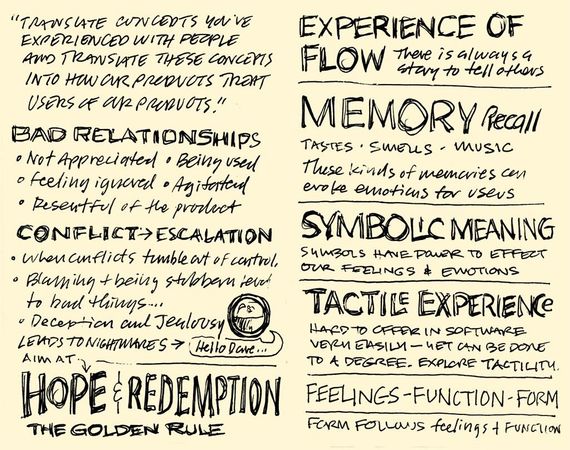 "TRANSLATE CONCEPTS YOU'VE
EXPERIENCED WITH PEOPLE
AND TRANSLATE THESE CONCEPTS
INTO HOW OUR PRODUCTS TREAT
USERS OF OUR PRODUCTS."
BAD RELATIONSHIPS
• Not Appreciated • Being used
• Feeling ignored • Agitated
• Resentful of the product
CONFLICT→ESCALATION
• when conflicts tumble out of control.
• Blaming + being stubborn lead
to bad things...
• Deception and Jealousy
LEADS TO NIGHTMARES →
Hello Dave...
AIM AT
HOPE & REDEMPTION
THE GOLDEN RULE
EXPERIENCE OF
FLOW There is always a
story to tell others
MEMORY Recall
TASTES · SMELLS · MUSIC
These kinds of memories can
evoke emotions for users
SYMBOLIC MEANING
SYMBOLS HAVE POWER TO EFFECT
OUR FEELINGS & EMOTIONS
TACTILE EXPERIENCE
HARD TO OFFER IN SOFTWARE
VERY EASILY — YET CAN BE DONE
TO A DEGREE. EXPLORE TACTILITY.
FEELINGS-FUNCTION-FORM
FORM FOLLOWS feelings + FUNCTION